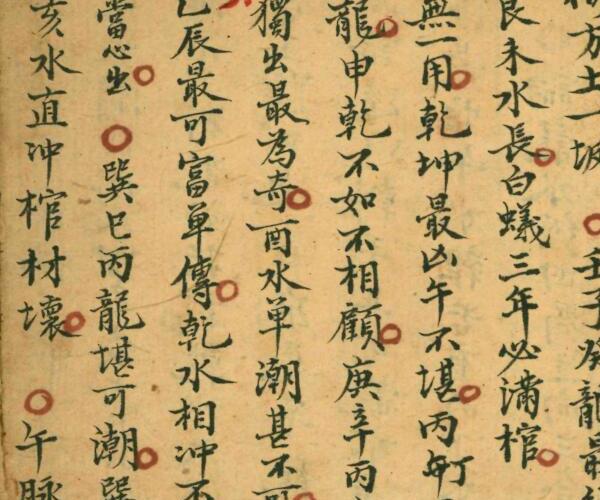 方土一坂 壬子癸龍最
艮未水長白蟻三年必滿棺
無一用乾坤最凶午不堪丙
龍申乾不如不相顧庚辛丙
獨出最為奇酉水单潮甚不
乙辰最可富单傳乾水相冲不
當心出 巽巳丙龍堪可潮巽
亥水直冲棺材壞 午脉